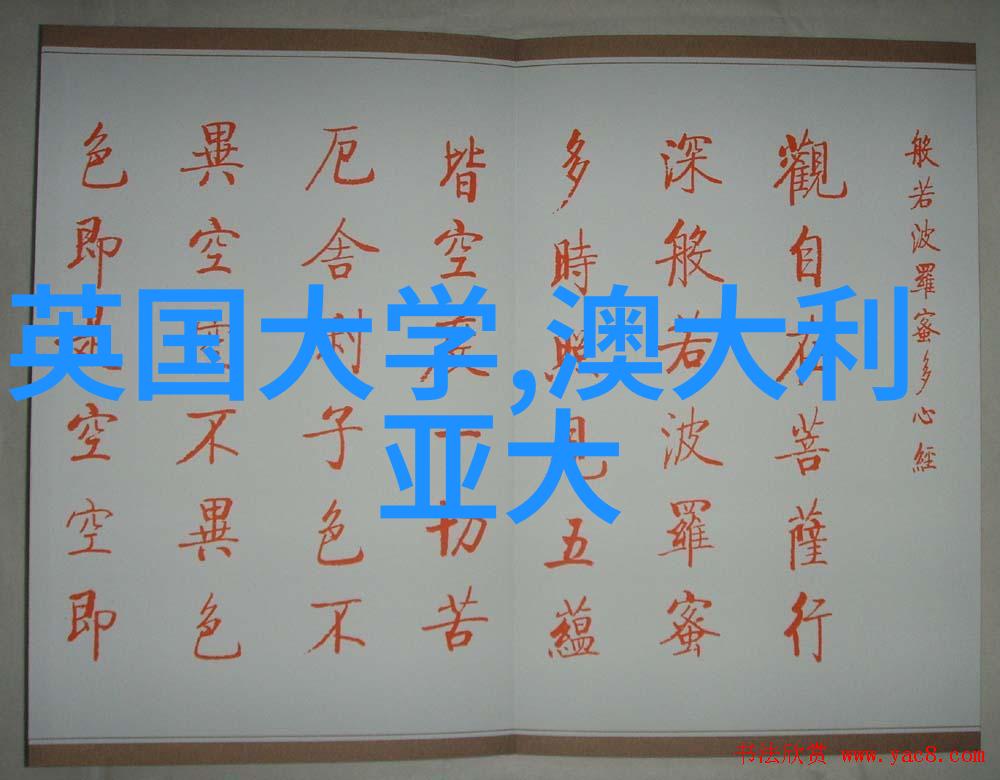 般若波羅蜜多心經
觀自在菩薩行
深般若波羅蜜
多時照見五蘊
皆空度一切苦
厄舍利子色不
異空空不異色
色即是空空即
英国大学,澳大利
亚大
书法欣赏 www.yac8.com